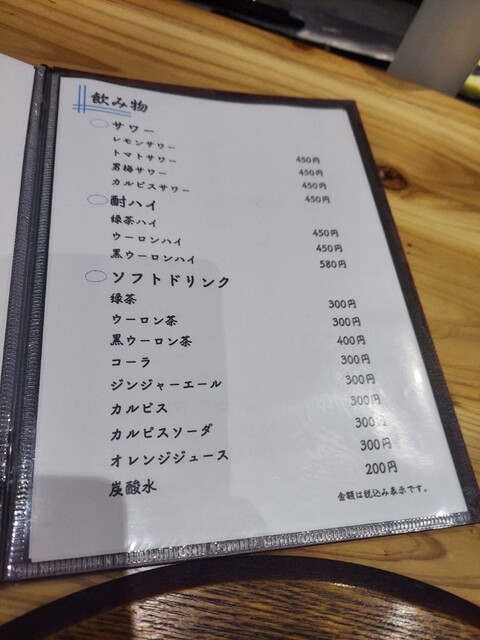 飲み物
サワー
レモンサワー 450円
トマトサワー 450円
男梅サワー 450円
カルピスサワー 450円
酎ハイ
緑茶ハイ 450円
ウーロンハイ 450円
黒ウーロンハイ 580円
ソフトドリンク
緑茶 300円
ウーロン茶 300円
黒ウーロン茶 400円
コーラ 300円
ジンジャーエール 300円
カルピス 300円
カルピスソーダ 300円
オレンジジュース 300円
炭酸水 200円
金額は税込み表示です。